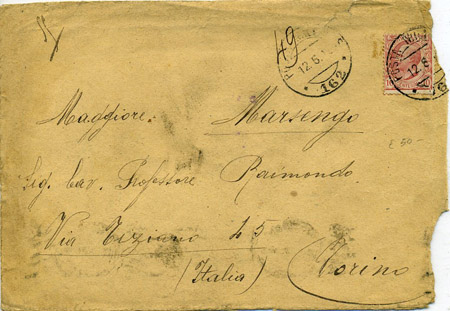 49
12.6
162
POSTA
12.6
Maggiore. Marsengo
Sig. Cav. Professore Raimondo
Via Tiziano 45
(Italia) Torino
£ 50-